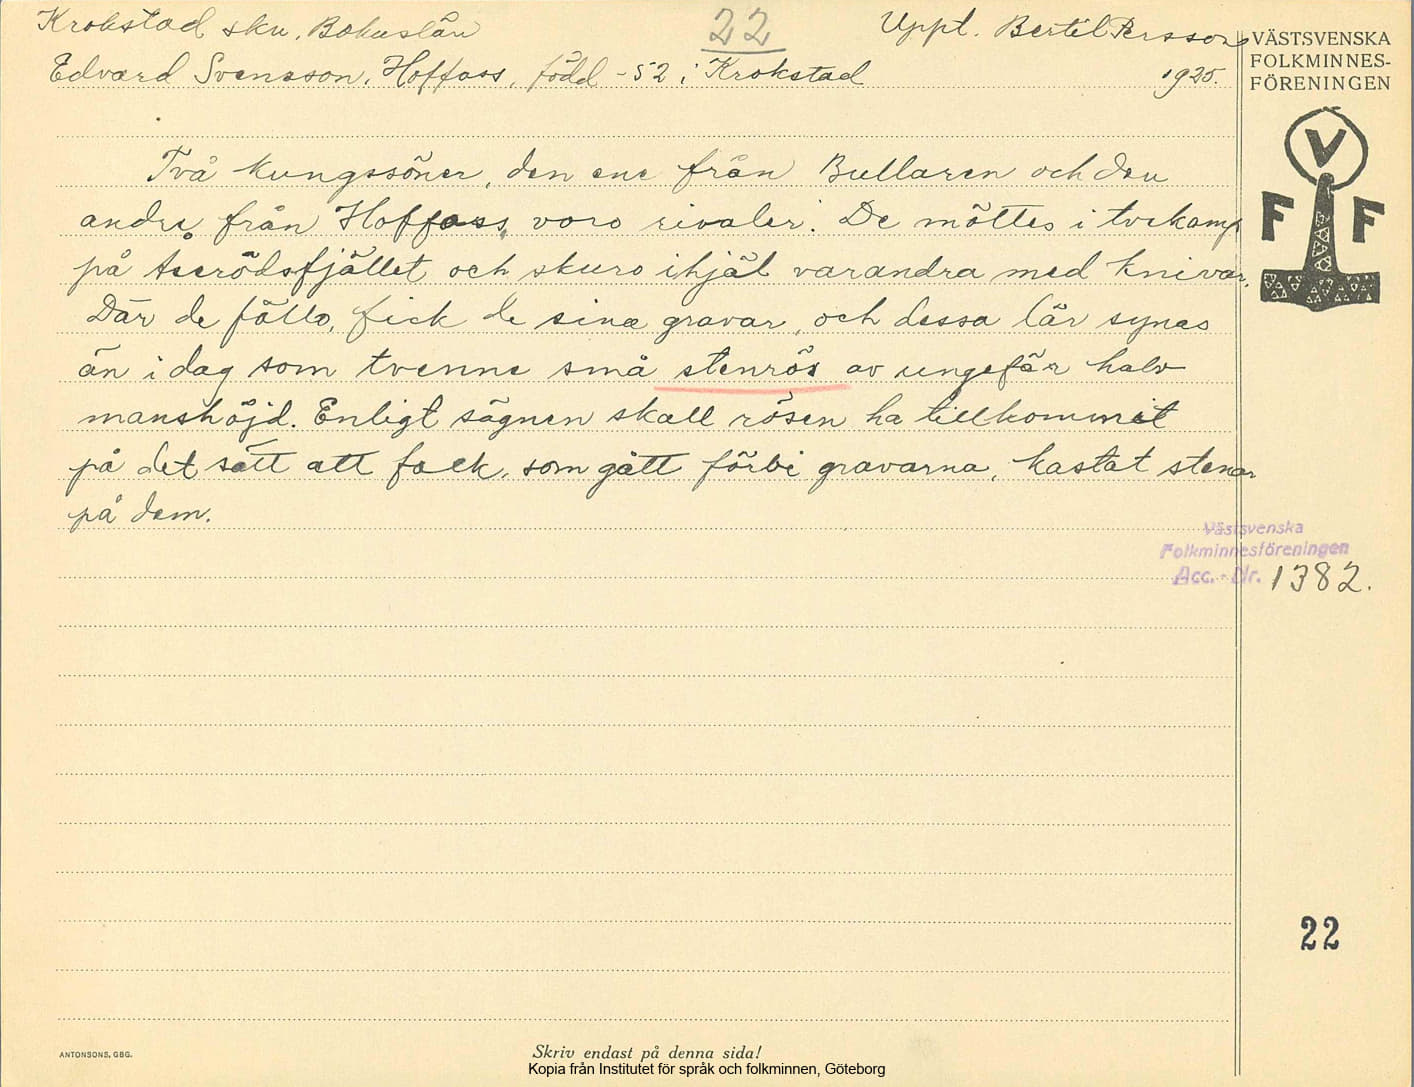 Krokstad skn, Bohuslän
22
Uppt. Bertil Persson
Edvard Svensson, Hoffass, född -52 i Krokstad
1925.
VÄSTSVENSKA
FOLKMINNES-
FÖRENINGEN
V
F F
Två kungssöner, den ene från Bullaren och den
andre från Hoffass, voro rivaler. De möttes i tvekamp
på Aserödsfjället och skuro ihjäl varandra med knivar.
Där de föllo, fick de sina gravar, och dessa lär synas
än i dag som tvenne små stenrös av ungefär halv
manshöjd. Enligt sägnen skall rösen ha tillkommit
på det sätt att folk, som gått förbi gravarna, kastat stenar
på dem.
Västsvenska
Folkminnesföreningen
Acc. - Nr. 1382.
22
ANTONSONS, GBG.
Skriv endast på denna sida!
Kopia från Institutet för språk och folkminnen, Göteborg